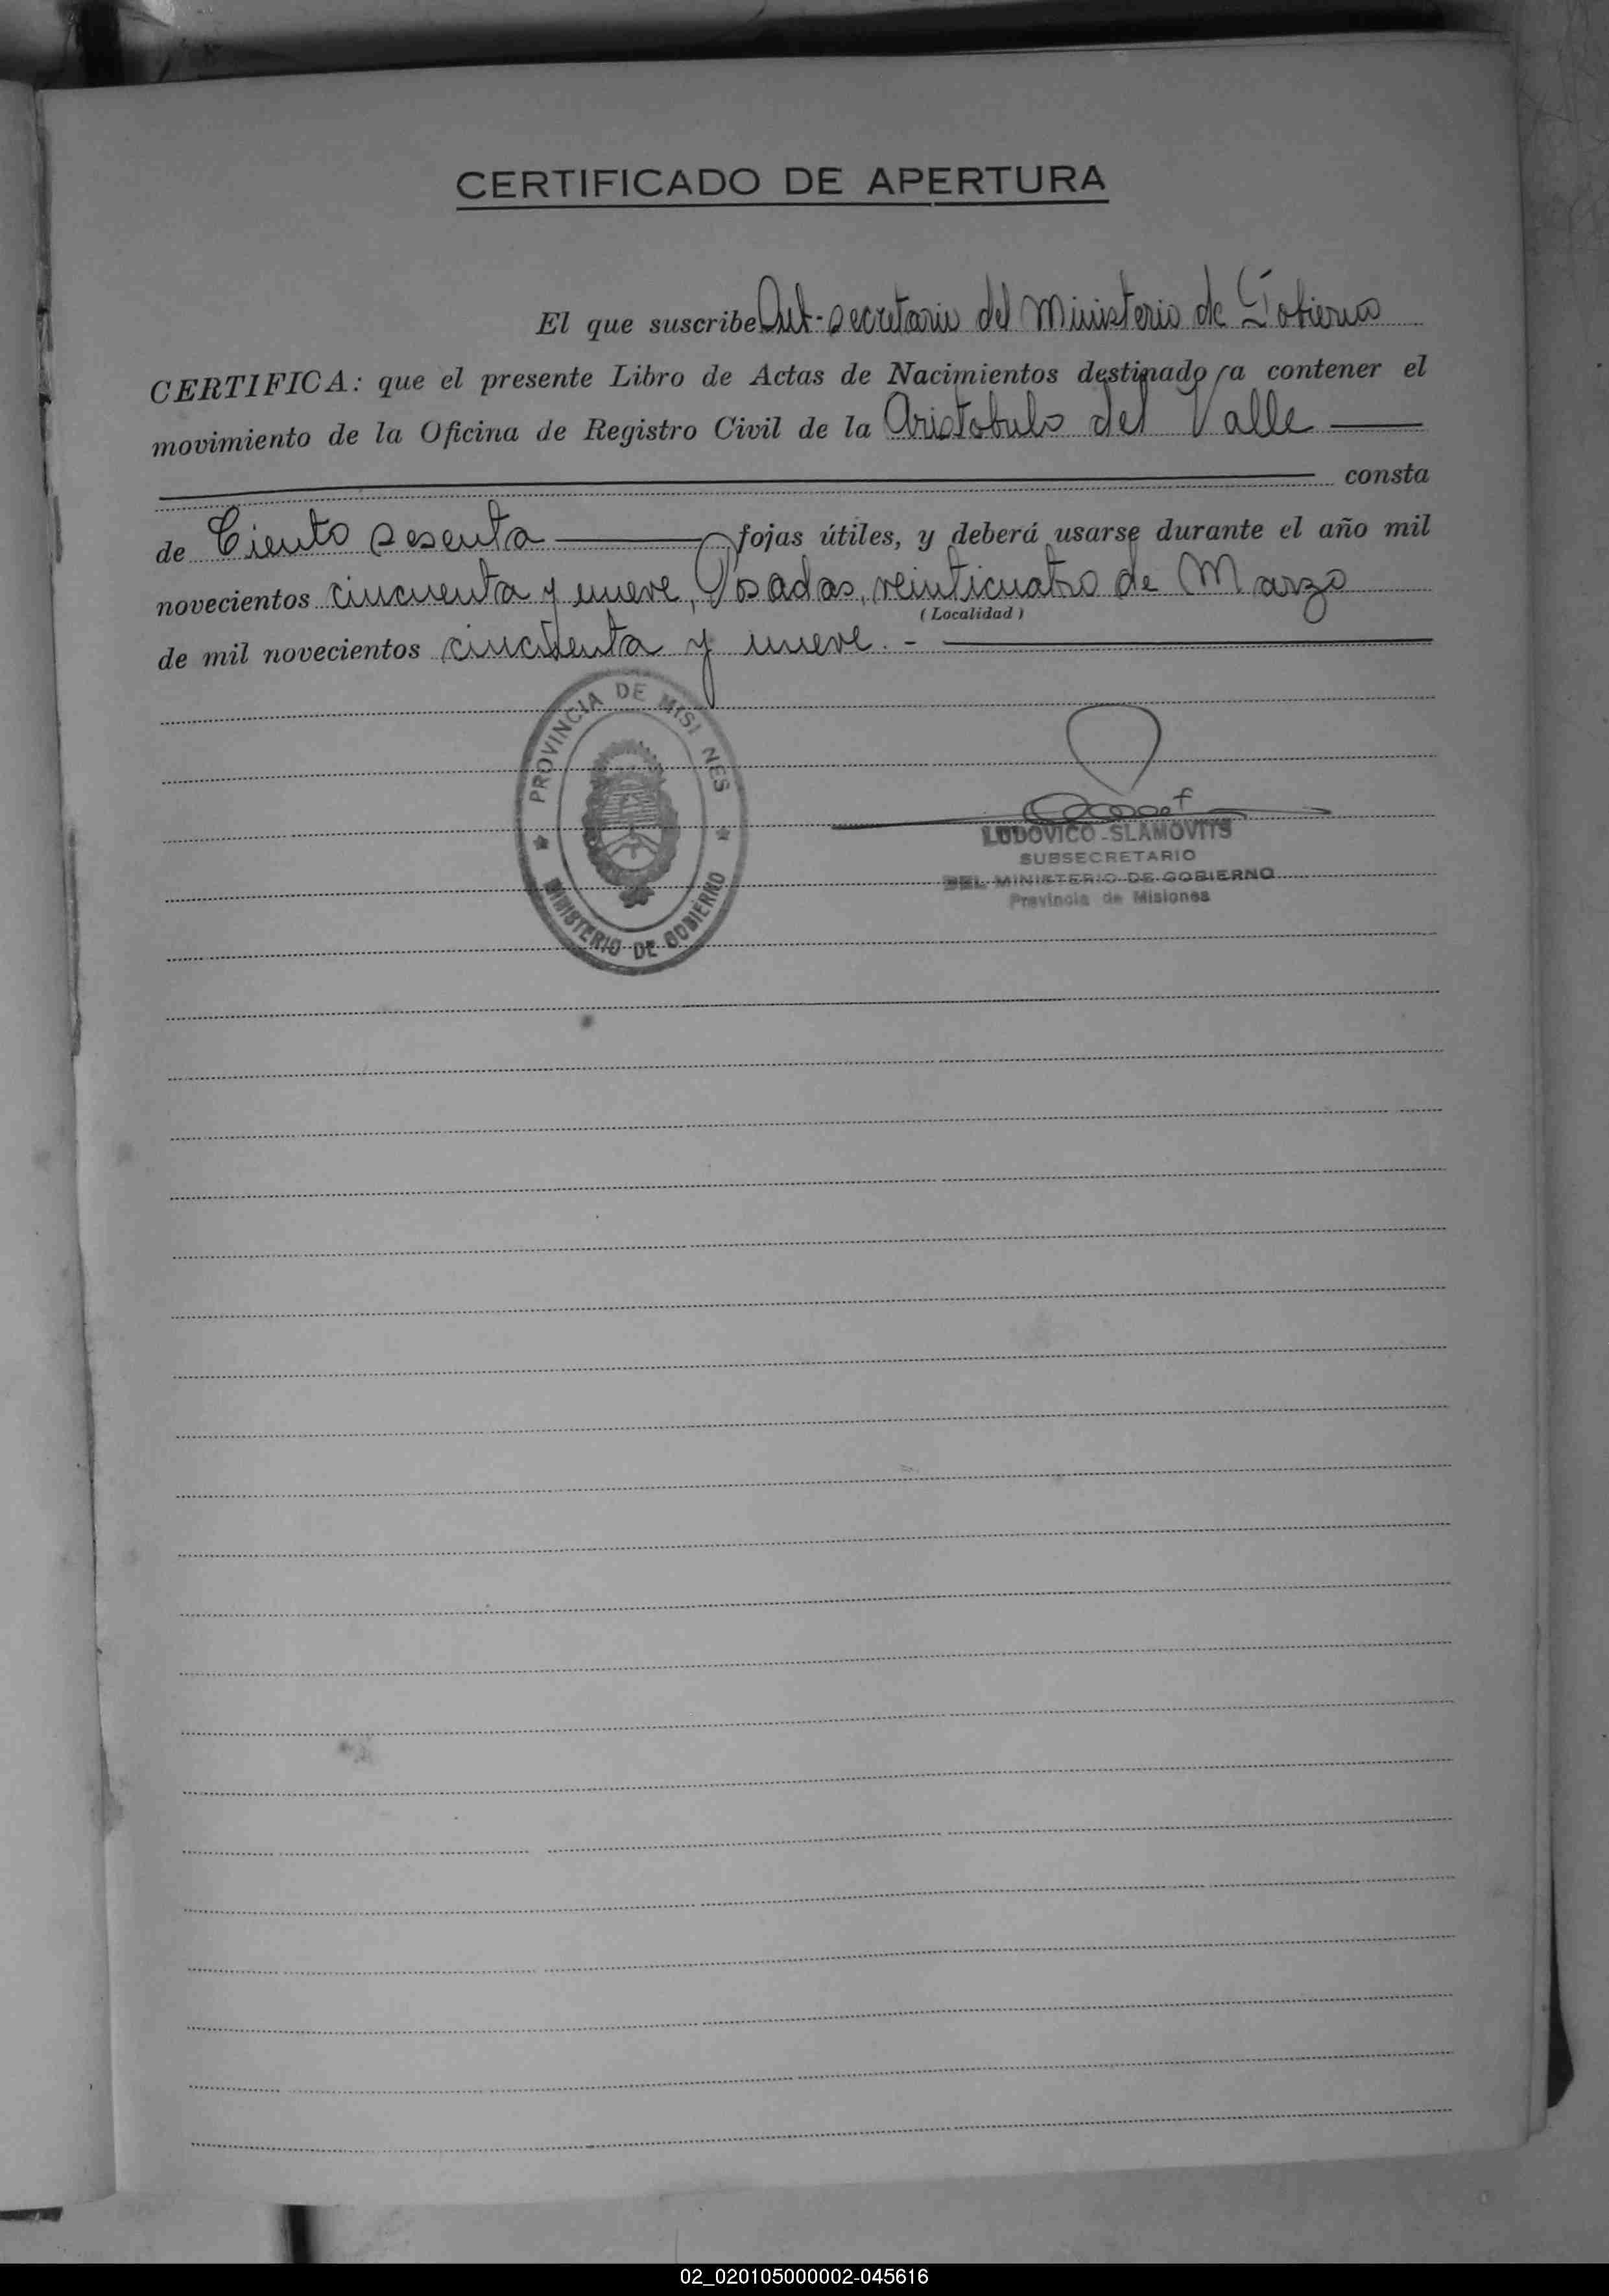 CERTIFICADO DE APERTURA
El que suscribe Sub-secretario del Ministerio de Gobierno
CERTIFICA: que el presente Libro de Actas de Nacimientos destinado a contener el
movimiento de la Oficina de Registro Civil de la Aristobulo del Valle
consta
de Ciento sesenta fojas útiles, y deberá usarse durante el año mil
novecientos cincuenta y nueve, Posadas, veinticuatro de Marzo
(Localidad)
de mil novecientos cincuenta y nueve. -
PROVINCIA DE MISI NES
MINISTERIO DE GOBIERNO
LUDOVICO SLAMOVITS
SUBSECRETARIO
DEL MINISTERIO DE GOBIERNO
Provincia de Misiones
02_020105000002-045616